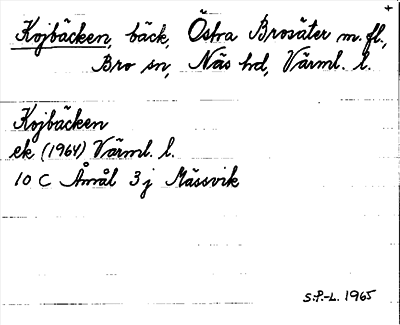 +
Kojbäcken, bäck, Östra Brosäter m. fl.,
Bro sn, Näs hd, Värml. l.
Kojbäcken
ek (1964) Värml. l.
10 C Åmål 3 j Mässvik
S.P.-L. 1965